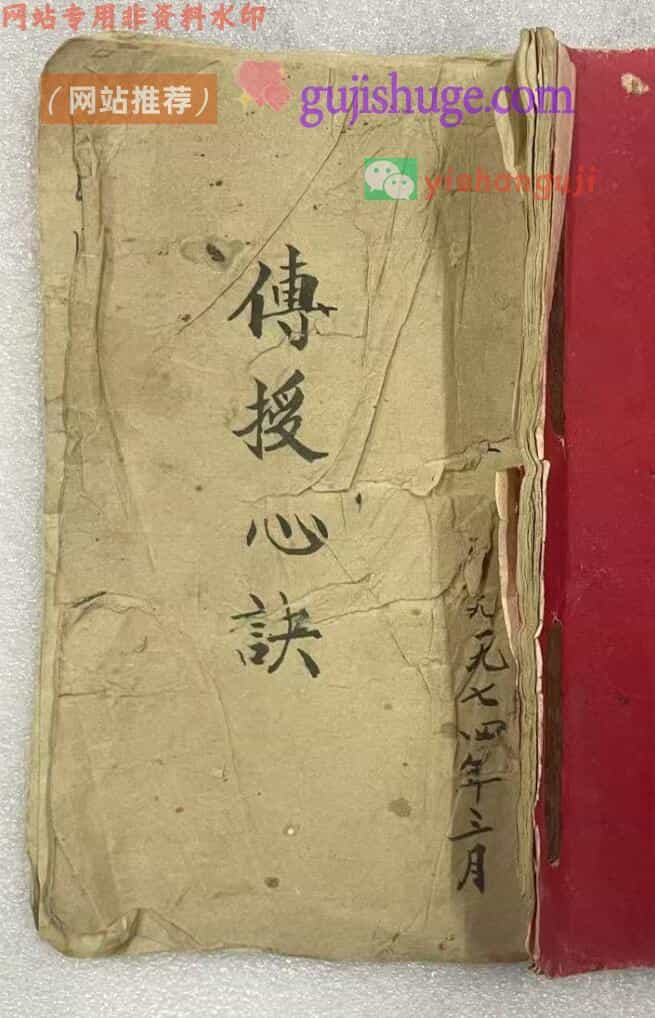 网站专用非资料水印
（网站推荐）
gujishuge.com
yishanguji
傳授心訣
一九七四年三月